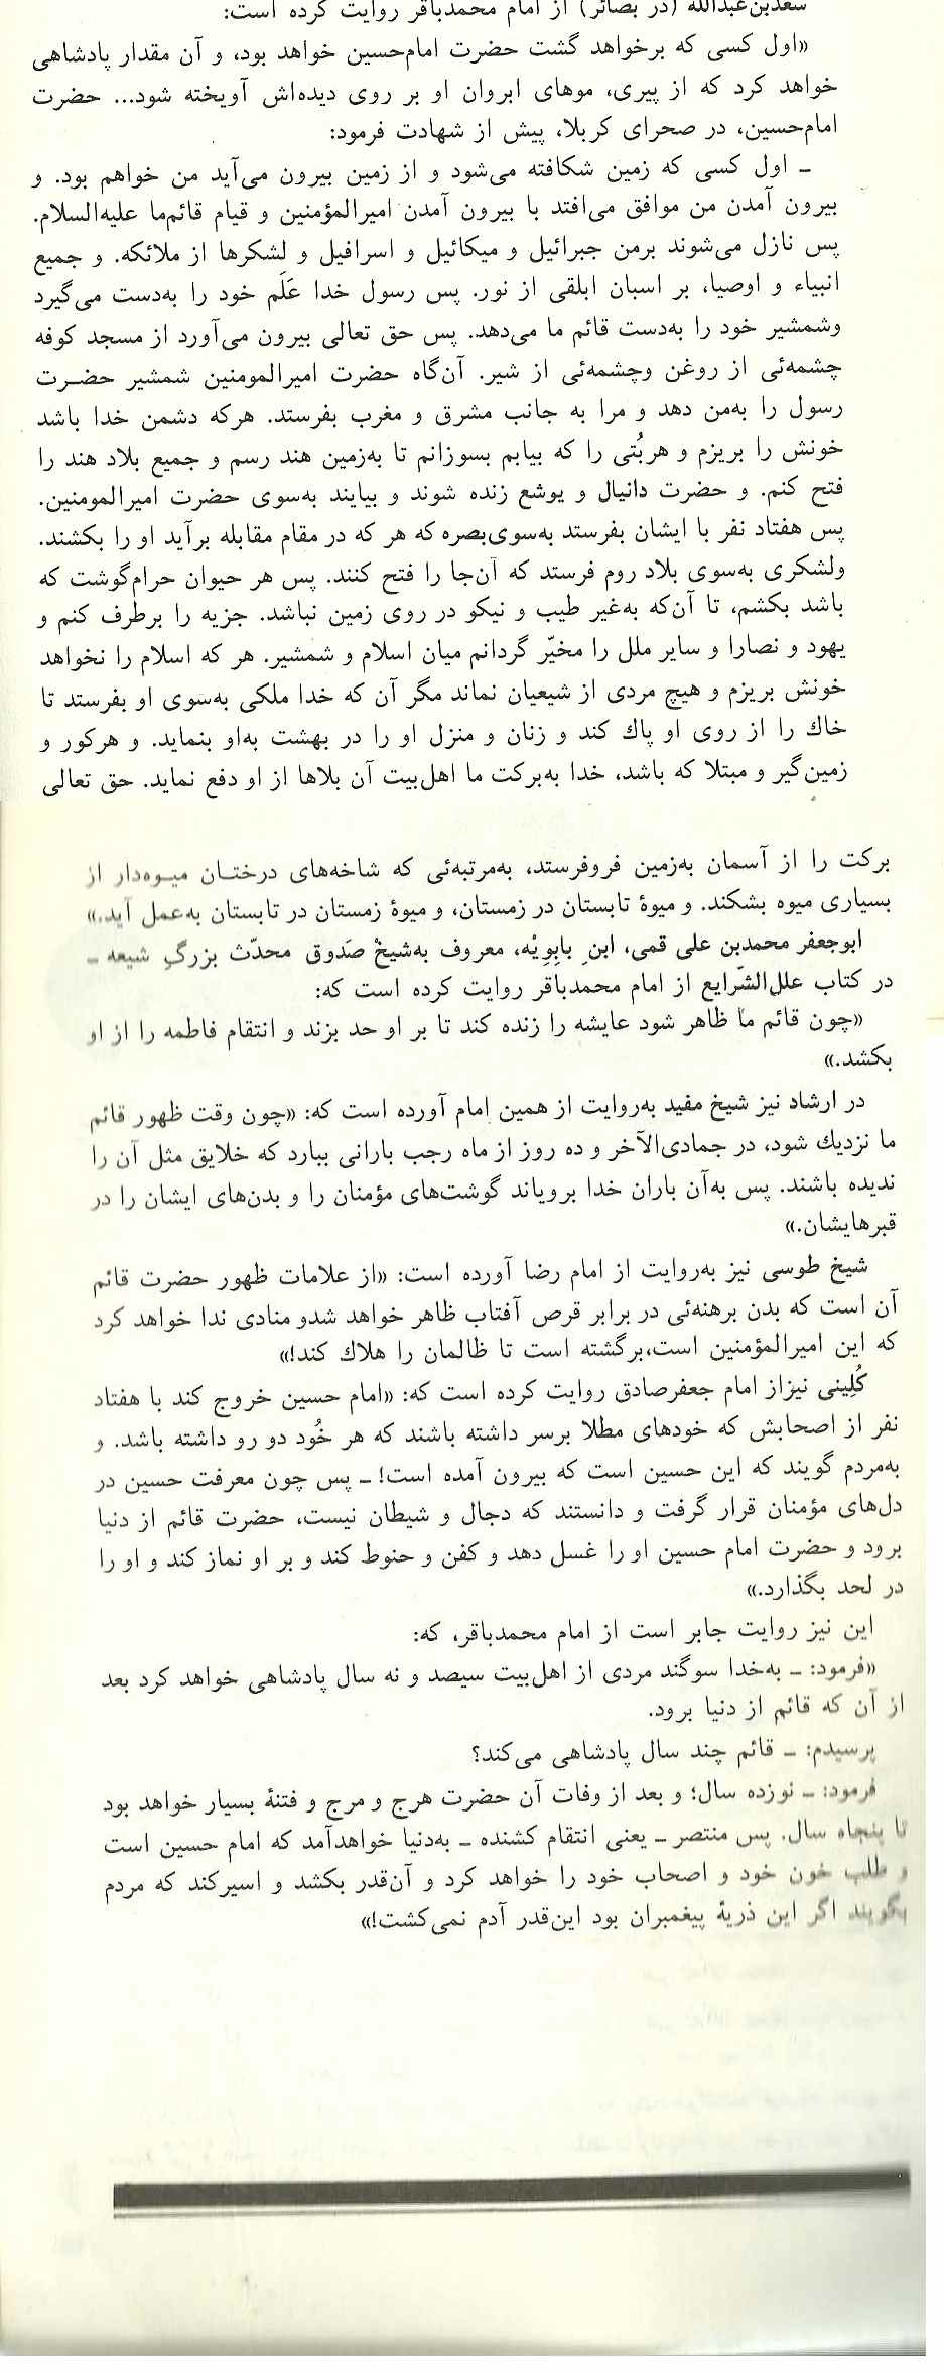 سعدبن‌عبدالله (در بصائر) از امام محمدباقر روایت کرده است:
«اول کسی که برخواهد گشت حضرت امام‌حسین خواهد بود، و آن مقدار پادشاهی
خواهد کرد که از پیری، موهای ابروان او بر روی دیده‌اش آویخته شود... حضرت
امام‌حسین، در صحرای کربلا، پیش از شهادت فرمود:
ـ اول کسی که زمین شکافته می‌شود و از زمین بیرون می‌آید من خواهم بود. و
بیرون آمدن من موافق می‌افتد با بیرون آمدن امیرالمؤمنین و قیام قائم‌ما علیه‌السلام.
پس نازل می‌شوند برمن جبرائیل و میکائیل و اسرافیل و لشکرها از ملائکه. و جمیع
انبیاء و اوصیا، بر اسبان ابلقی از نور. پس رسول خدا عَلَم خود را به‌دست می‌گیرد
وشمشیر خود را به‌دست قائم ما می‌دهد. پس حق تعالی بیرون می‌آورد از مسجد کوفه
چشمه‌ئی از روغن وچشمه‌ئی از شیر. آن‌گاه حضرت امیرالمومنین شمشیر حضـرت
رسول را به‌من دهد و مرا به جانب مشرق و مغرب بفرستد. هرکه دشمن خدا باشد
خونش را بریزم و هربُتی را که بیابم بسوزانم تا به‌زمین هند رسم و جمیع بلاد هند را
فتح کنم. و حضرت دانیال و یوشع زنده شوند و بیایند به‌سوی حضرت امیرالمومنین.
پس هفتاد نفر با ایشان بفرستد به‌سوی‌بصره که هر که در مقام مقابله برآید او را بکشند.
ولشکری به‌سوی بلاد روم فرستد که آن‌جا را فتح کنند. پس هر حیوان حرام‌گوشت که
باشد بکشم، تا آن‌که به‌غیر طیب و نیکو در روی زمین نباشد. جزیه را برطرف کنم و
یهود و نصارا و سایر ملل را مخیّر گردانم میان اسلام و شمشیر. هر که اسلام را نخواهد
خونش بریزم و هیچ مردی از شیعیان نماند مگر آن که خدا ملکی به‌سوی او بفرستد تا
خاك را از روی او پاك کند و زنان و منزل او را در بهشت به‌او بنماید. و هرکور و
زمین‌گیر و مبتلا که باشد، خدا به‌برکت ما اهل‌بیت آن بلاها از او دفع نماید. حق تعالی
برکت را از آسمان به‌زمین فروفرستد، به‌مرتبه‌ئی که شاخه‌های درختـان میـوه‌دار از
بسیاری میوه بشکند. و میوهٔ تابستان در زمستان، و میوهٔ زمستان در تابستان به‌عمل آید.»
ابوجعفر محمدبن علی قمی، ابنِ بابِویْه، معروف به‌شیخْ صَدوق محدّث بزرگِ شیعه ـ
در کتاب علل‌الشّرایع از امام محمدباقر روایت کرده است که:
«چون قائم ما ظاهر شود عایشه را زنده کند تا بر او حد بزند و انتقام فاطمه را از او
بکشد.»
در ارشاد نیز شیخ مفید به‌روایت از همین امام آورده است که: «چون وقت ظهور قائم
ما نزدیك شود، در جمادی‌الآخر و ده روز از ماه رجب بارانی ببارد که خلایق مثل آن را
ندیده باشند. پس به‌آن باران خدا برویاند گوشت‌های مؤمنان را و بدن‌های ایشان را در
قبرهایشان.»
شیخ طوسی نیز به‌روایت از امام رضا آورده است: «از علامات ظهور حضرت قائم
آن است که بدن برهنه‌ئی در برابر قرص آفتاب ظاهر خواهد شدو منادی ندا خواهد کرد
که این امیرالمؤمنین است،برگشته است تا ظالمان را هلاك کند!»
کُلِینی نیزاز امام جعفرصادق روایت کرده است که: «امام حسین خروج کند با هفتاد
نفر از اصحابش که خودهای مطلا برسر داشته باشند که هر خُود دو رو داشته باشد. و
به‌مردم گویند که این حسین است که بیرون آمده است! ـ پس چون معرفت حسین در
دل‌های مؤمنان قرار گرفت و دانستند که دجال و شیطان نیست، حضرت قائم از دنیا
برود و حضرت امام حسین او را غسل دهد و کفن و حنوط کند و بر او نماز کند و او را
در لحد بگذارد.»
این نیز روایت جابر است از امام محمدباقر، که:
«فرمود: ـ به‌خدا سوگند مردی از اهل‌بیت سیصد و نه سال پادشاهی خواهد کرد بعد
از آن که قائم از دنیا برود.
پرسیدم: ـ قائم چند سال پادشاهی می‌کند؟
فرمود: ـ نوزده سال؛ و بعد از وفات آن حضرت هرج و مرج و فتنهٔ بسیار خواهد بود
تا پنجاه سال. پس منتصر ـ یعنی انتقام کشنده ـ به‌دنیا خواهدآمد که امام حسین است
و طلب خون خود و اصحاب خود را خواهد کرد و آن‌قدر بکشد و اسیرکند که مردم
بگویند اگر این ذریهٔ پیغمبران بود این‌قدر آدم نمی‌کشت!»